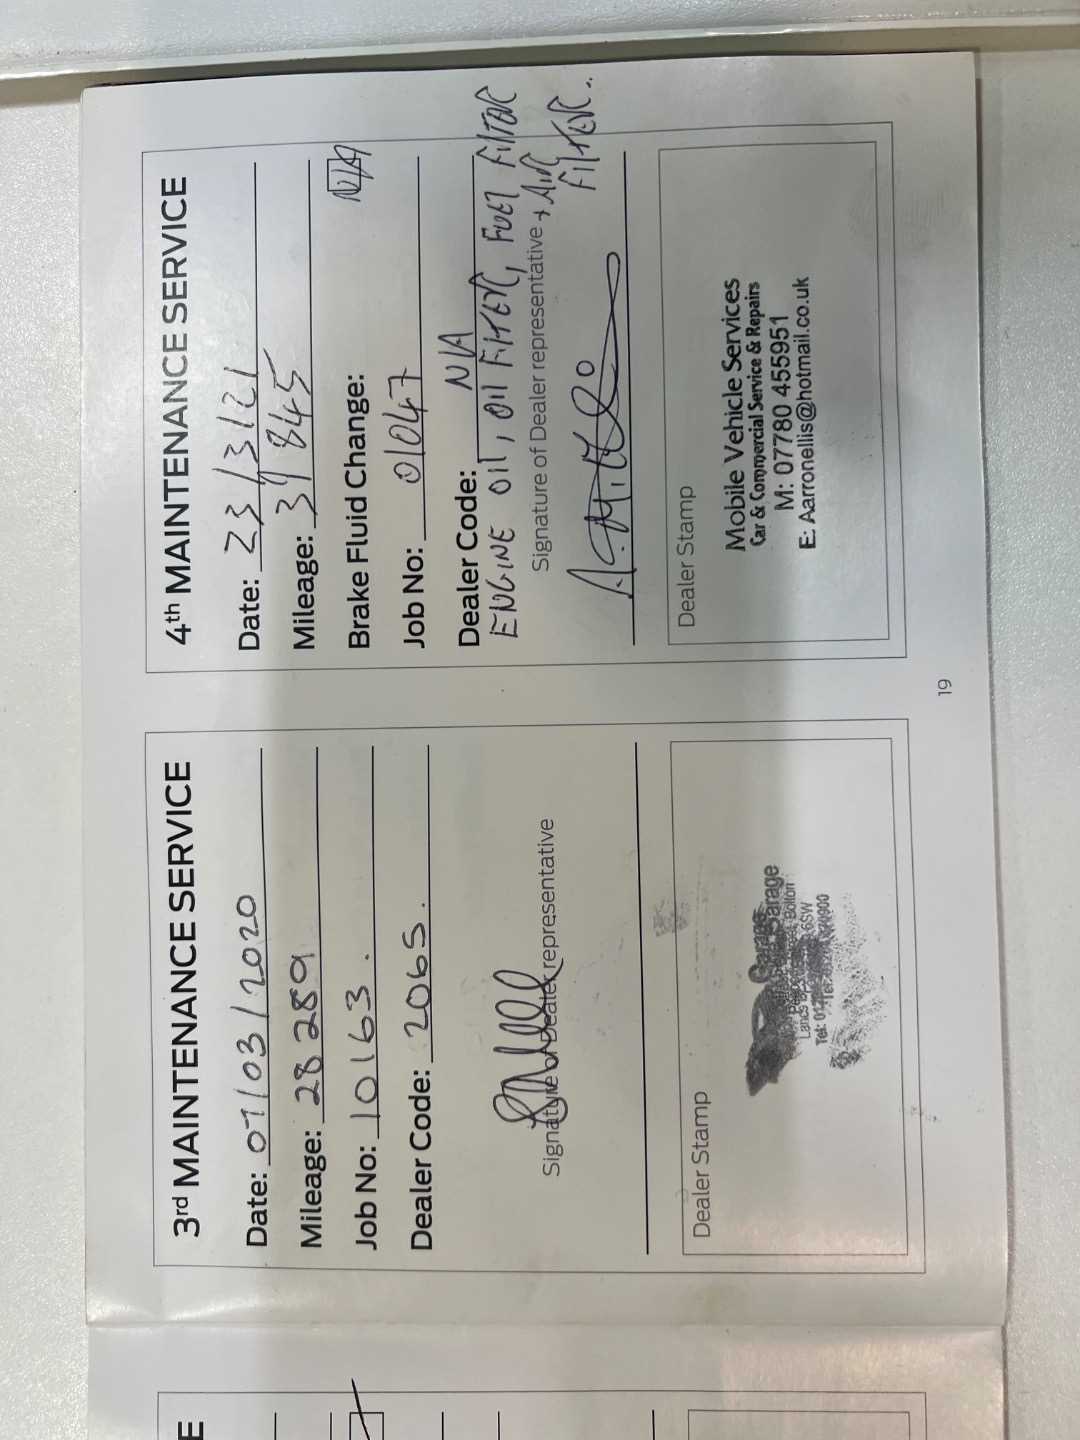 3rd MAINTENANCE SERVICE
Date: 07/03/2020
Mileage: 28 289
Job No: 10163.
Dealer Code: 2065.
Signature of Dealer representative
Dealer Stamp
Garage
Garage
Bolton
Lancs 6SW
Tel:
4th MAINTENANCE SERVICE
Date: 23/3/21
Mileage: 37845
Brake Fluid Change: N/A
Job No: 01047
Dealer Code: N/A
ENGINE OIL, OIL FILTER, FUEL FILTER
Signature of Dealer representative + AIR
FILTER..
Dealer Stamp
Mobile Vehicle Services
Car & Commercial Service & Repairs
M: 07780 455951
E: Aarronellis@hotmail.co.uk
19
E